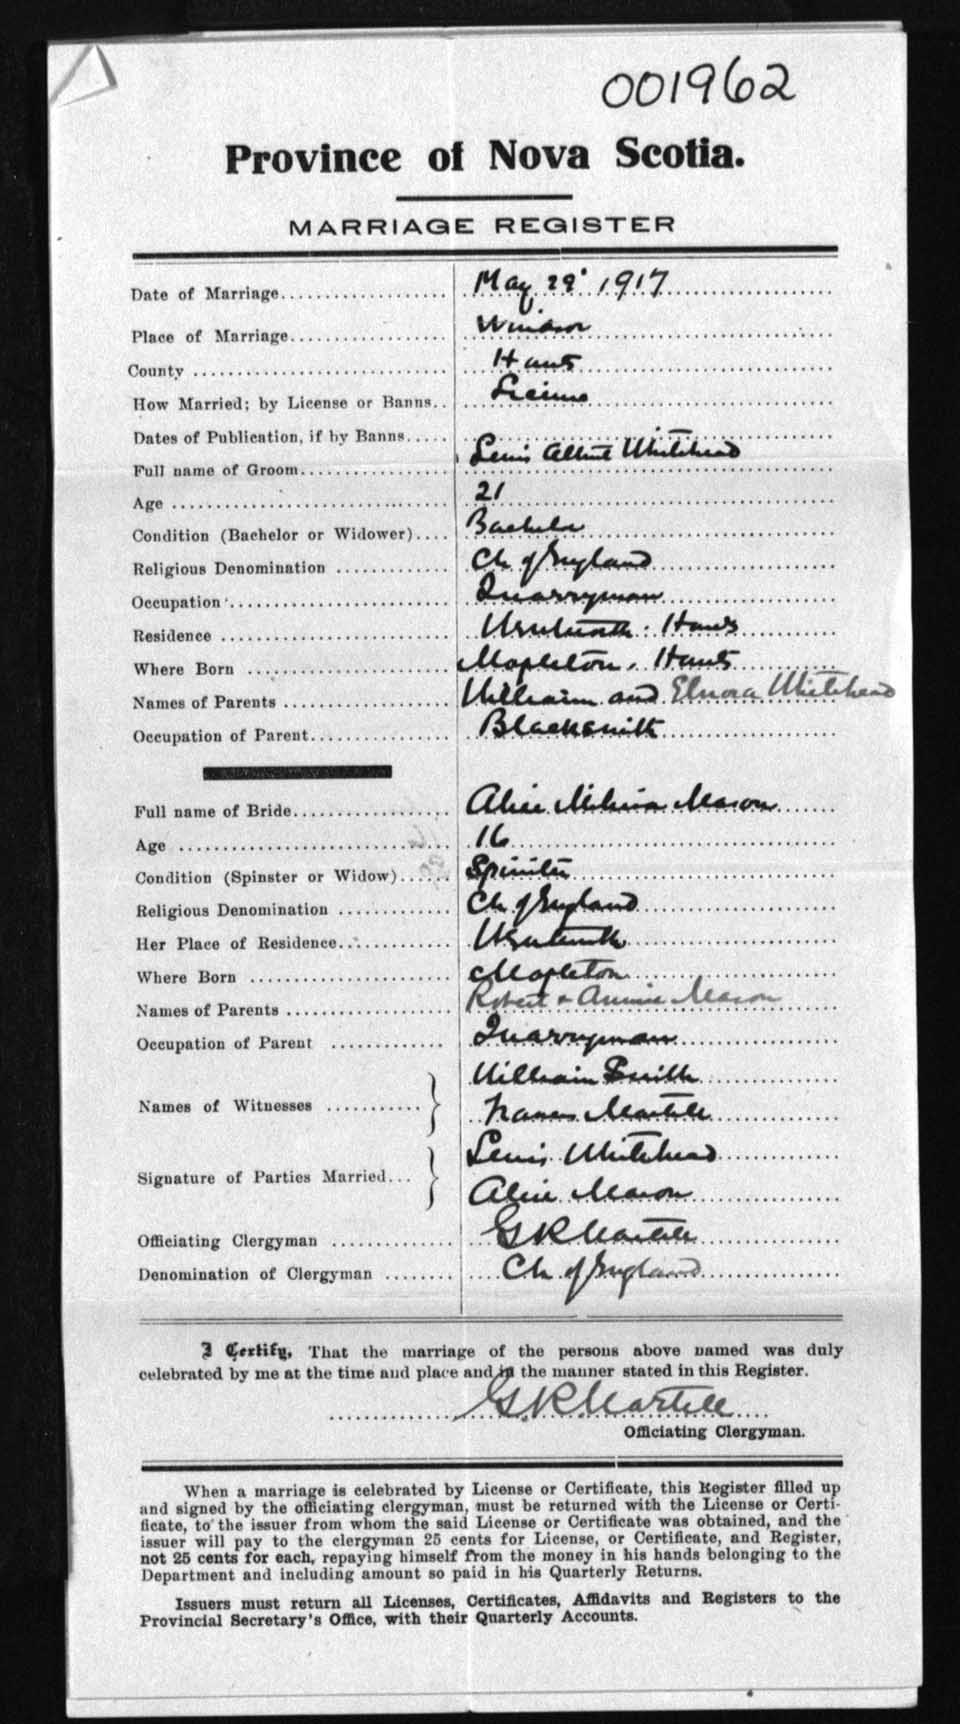 001962
Province of Nova Scotia.
MARRIAGE REGISTER
Date of Marriage.................... May 29' 1917
Place of Marriage.................. Windsor
County ............................. Hants
How Married; by License or Banns.. License
Dates of Publication, if by Banns.....
Full name of Groom................. Lewis Albert Whitehead
Age ............................... 21
Condition (Bachelor or Widower).... Bachelor
Religious Denomination ............ Ch. of England
Occupation......................... Quarryman
Residence ......................... Wentworth. Hants
Where Born ........................ Mapleton, Hants
Names of Parents .................. William and Elnora Whitehead
Occupation of Parent............... Blacksmith
Full name of Bride................. Alice Mason
Age ............................... 16
Condition (Spinster or Widow)...... Spinster
Religious Denomination ............ Ch. of England
Her Place of Residence............. Wentworth
Where Born ........................ Mapleton
Names of Parents .................. Robert + Annie Mason
Occupation of Parent .............. Quarryman
William Smith
Names of Witnesses ...........
Frances Martell
Lewis Whitehead
Signature of Parties Married...
Alice Mason
Officiating Clergyman ............. G R Martell
Denomination of Clergyman ........ Ch. of England
I Certify, That the marriage of the persons above named was duly
celebrated by me at the time and place and in the manner stated in this Register.
G. R. Martell
Officiating Clergyman.
When a marriage is celebrated by License or Certificate, this Register filled up
and signed by the officiating clergyman, must be returned with the License or Certi-
ficate, to the issuer from whom the said License or Certificate was obtained, and the
issuer will pay to the clergyman 25 cents for License, or Certificate, and Register,
not 25 cents for each, repaying himself from the money in his hands belonging to the
Department and including amount so paid in his Quarterly Returns.
Issuers must return all Licenses, Certificates, Affidavits and Registers to the
Provincial Secretary's Office, with their Quarterly Accounts.